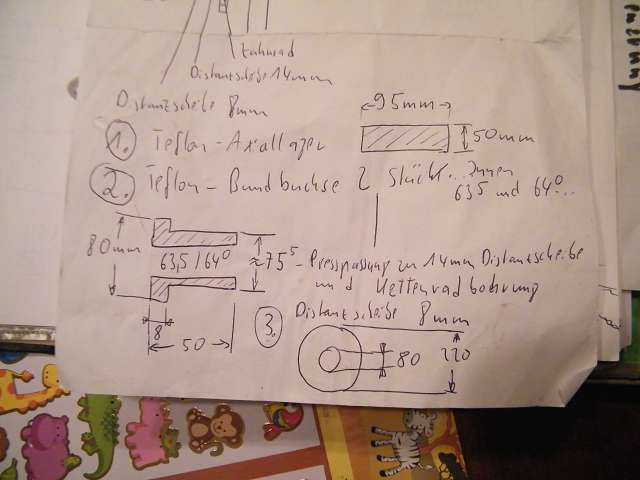 Zahnrad
Distanzscheibe 14mm
Distanzscheibe 8mm
95mm
50mm
1. Teflon-Axiallager
2. Teflon-Bundbuchse 2 Stück... Innen
63⁵ und 64⁰...
80mm
63,5/64⁰
≈75⁵ - Presspassung zu 14mm Distanzscheibe
und Kettenradbohrung
8
50
3. Distanzscheibe 8mm
80
220